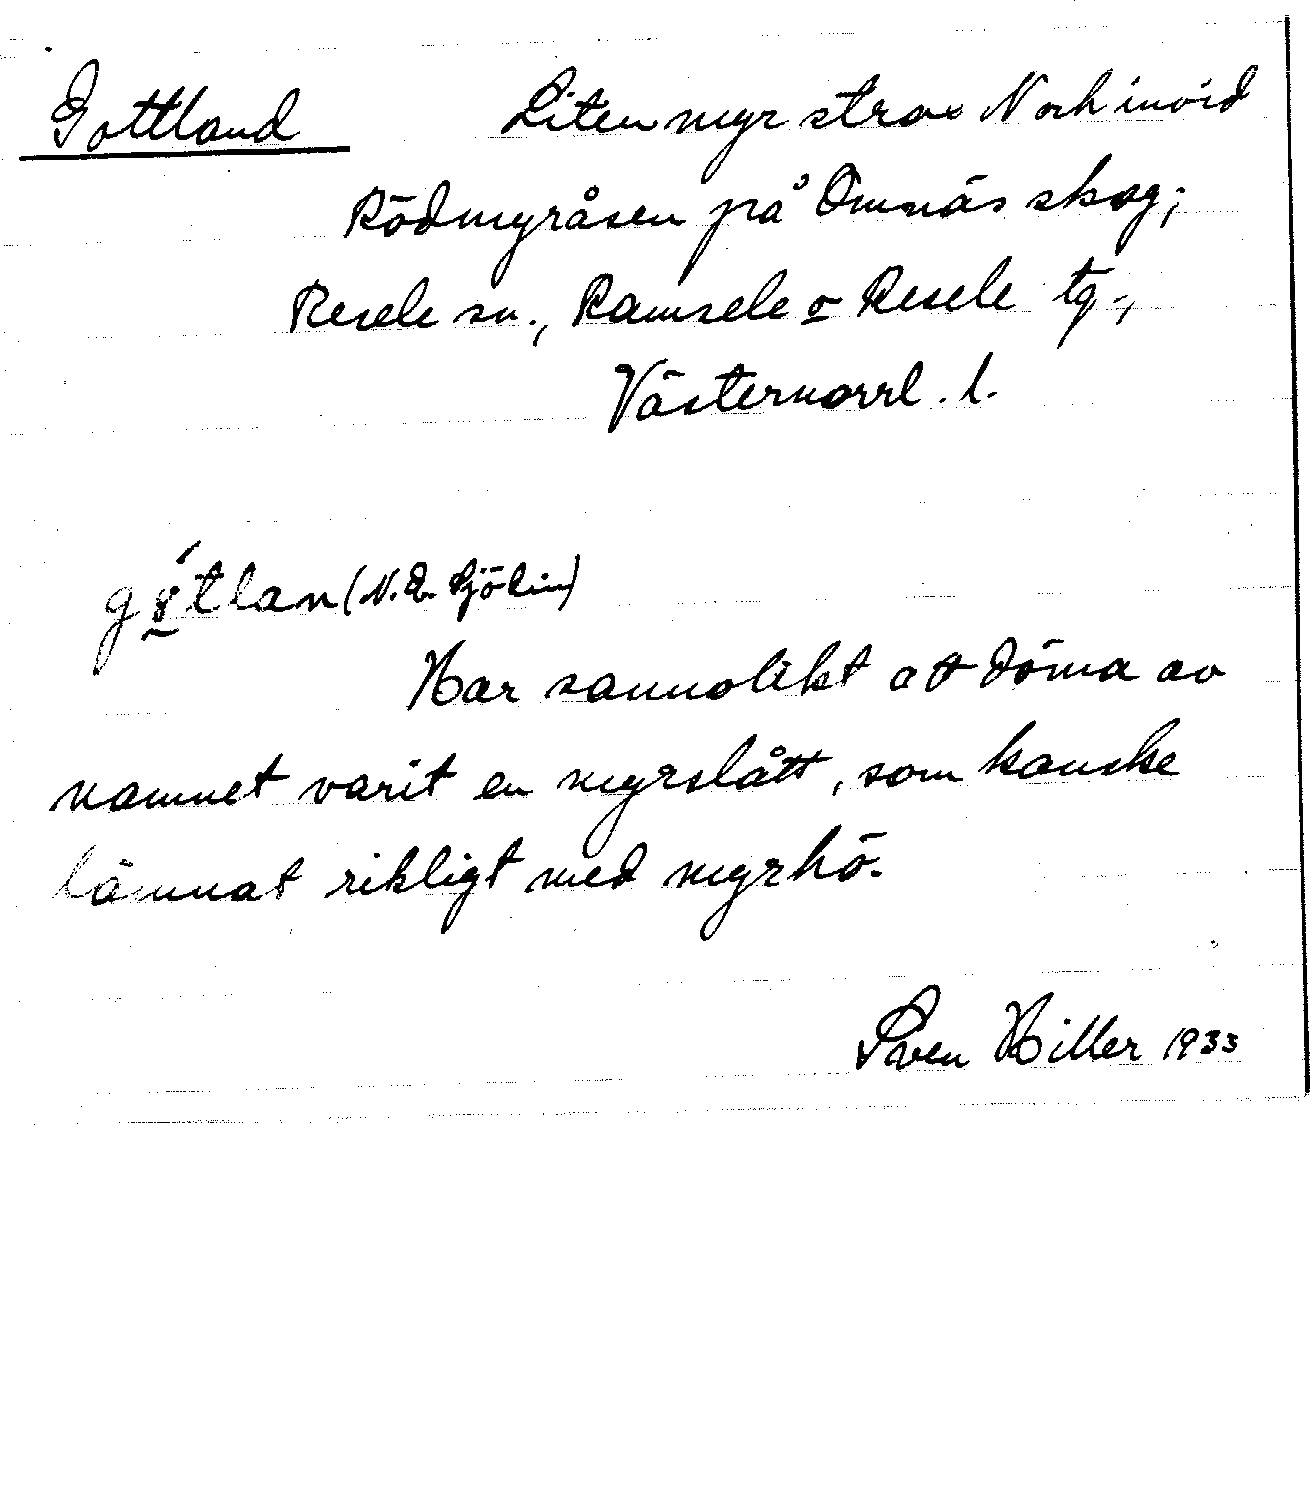 Gottland Liten myr strax N och invid
Rödmyråsen på Omnäs skog;
Resele sn., Ramsele o Resele tg.,
Västernorrl. l.
(N. E. Sjödin)
Har sannolikt att döma av
namnet varit en myrslått, som kanske
lämnat rikligt med myrhö.
Sven Hiller 1933